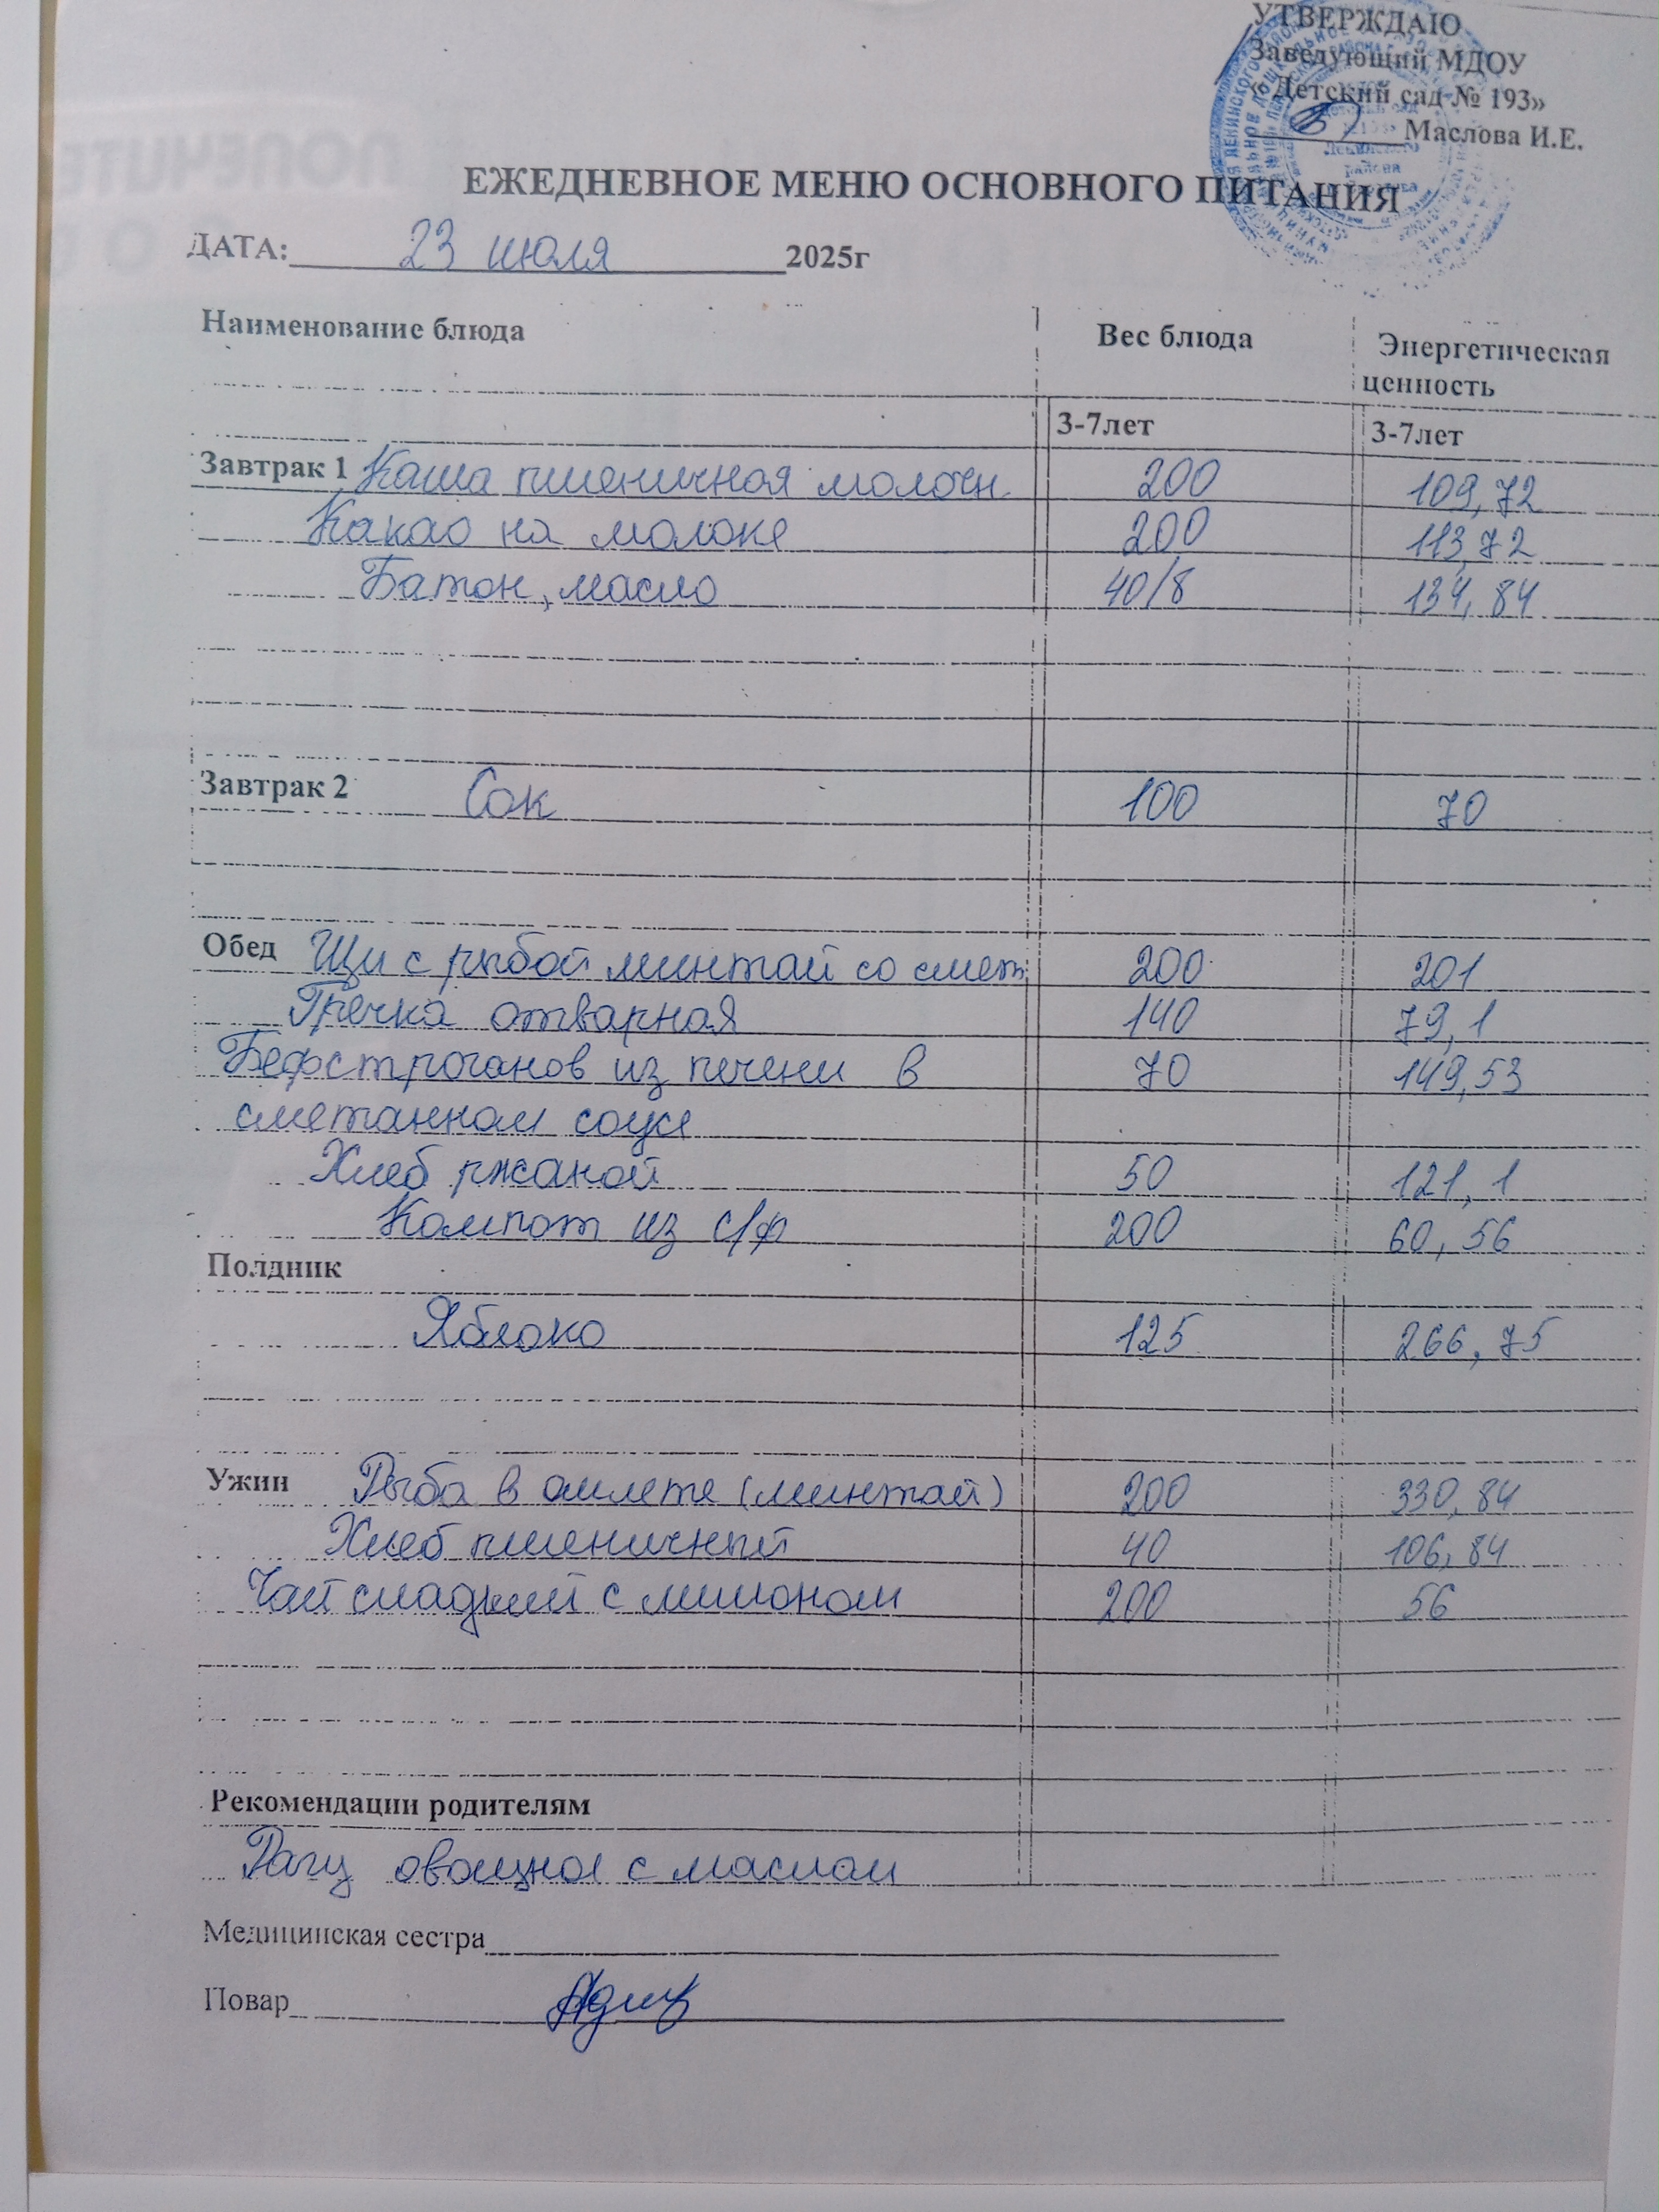 УТВЕРЖДАЮ
Заведующий МДОУ
«Детский сад № 193»
Маслова И.Е.
ЕЖЕДНЕВНОЕ МЕНЮ ОСНОВНОГО ПИТАНИЯ
ДАТА: 23 июля 2025г
Наименование блюда Вес блюда Энергетическая
ценность
3-7лет 3-7лет
Завтрак 1 Каша пшеничная молочн. 200 109,72
Какао на молоке 200 113,72
Батон, масло 40/8 134,84
Завтрак 2 Сок 100 70
Обед Щи с рыбой минтай со смет. 200 201
Гречка отварная 140 79,1
Бефстроганов из печени в 70 149,53
сметанном соусе
Хлеб ржаной 50 121,1
Компот из с/ф 200 60,56
Полдник
Яблоко 125 266,75
Ужин Рыба в омлете (минтай) 200 330,84
Хлеб пшеничный 40 106,84
Чай сладкий с лимоном 200 56
Рекомендации родителям
Рагу овощное с маслом
Медицинская сестра
Повар